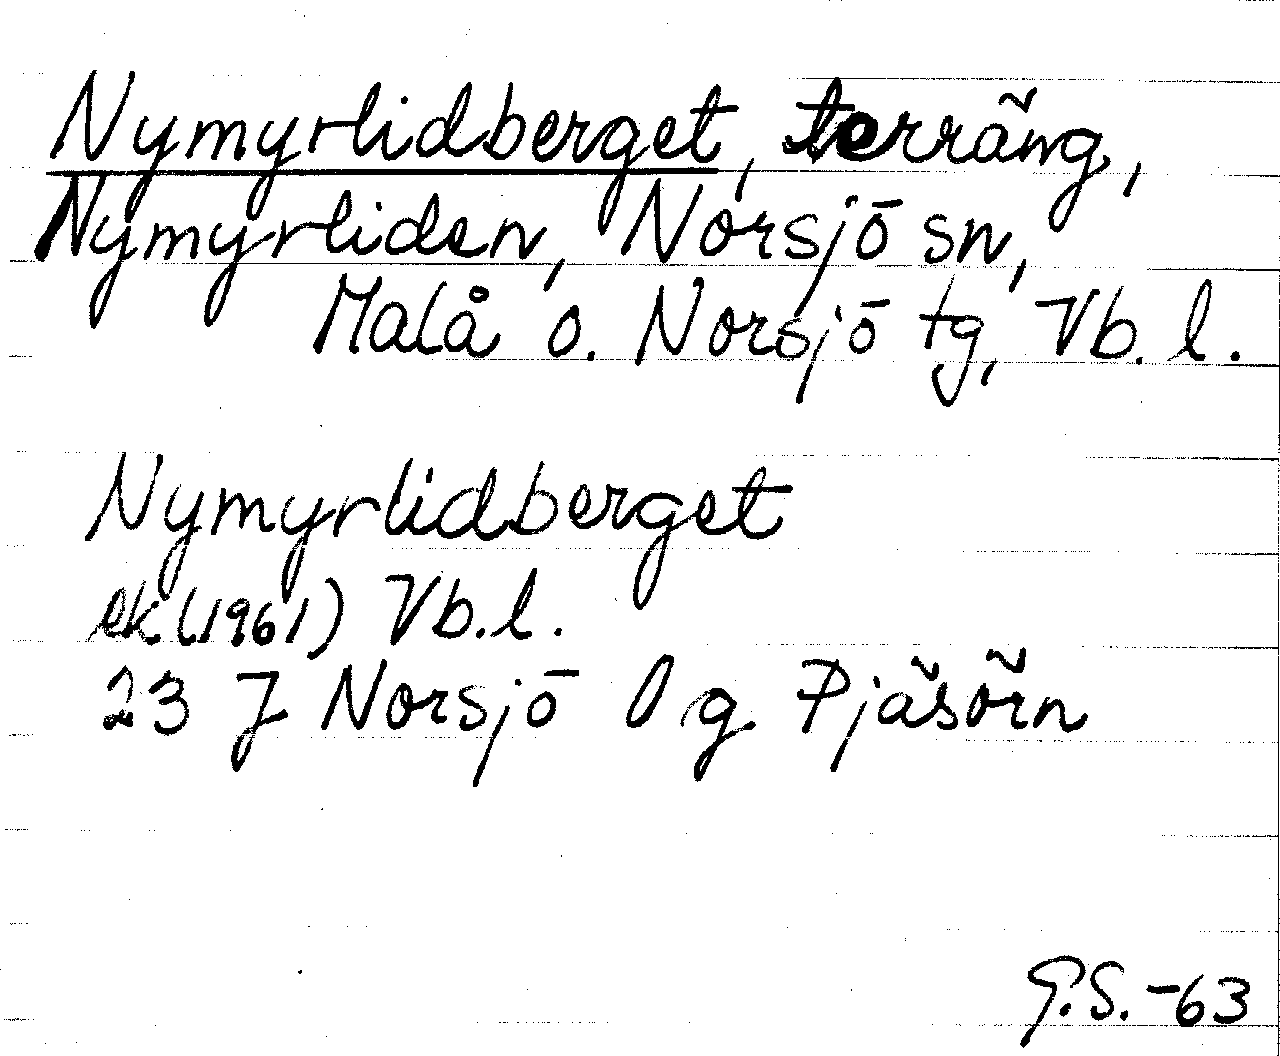 Nymyrlidberget, terräng,
Nymyrliden, Norsjö sn,
Malå o. Norsjö tg, Vb. l.
Nymyrlidberget
ek (1961) Vb. l.
23 J Norsjö l g Pjäsörn
G.S. -63